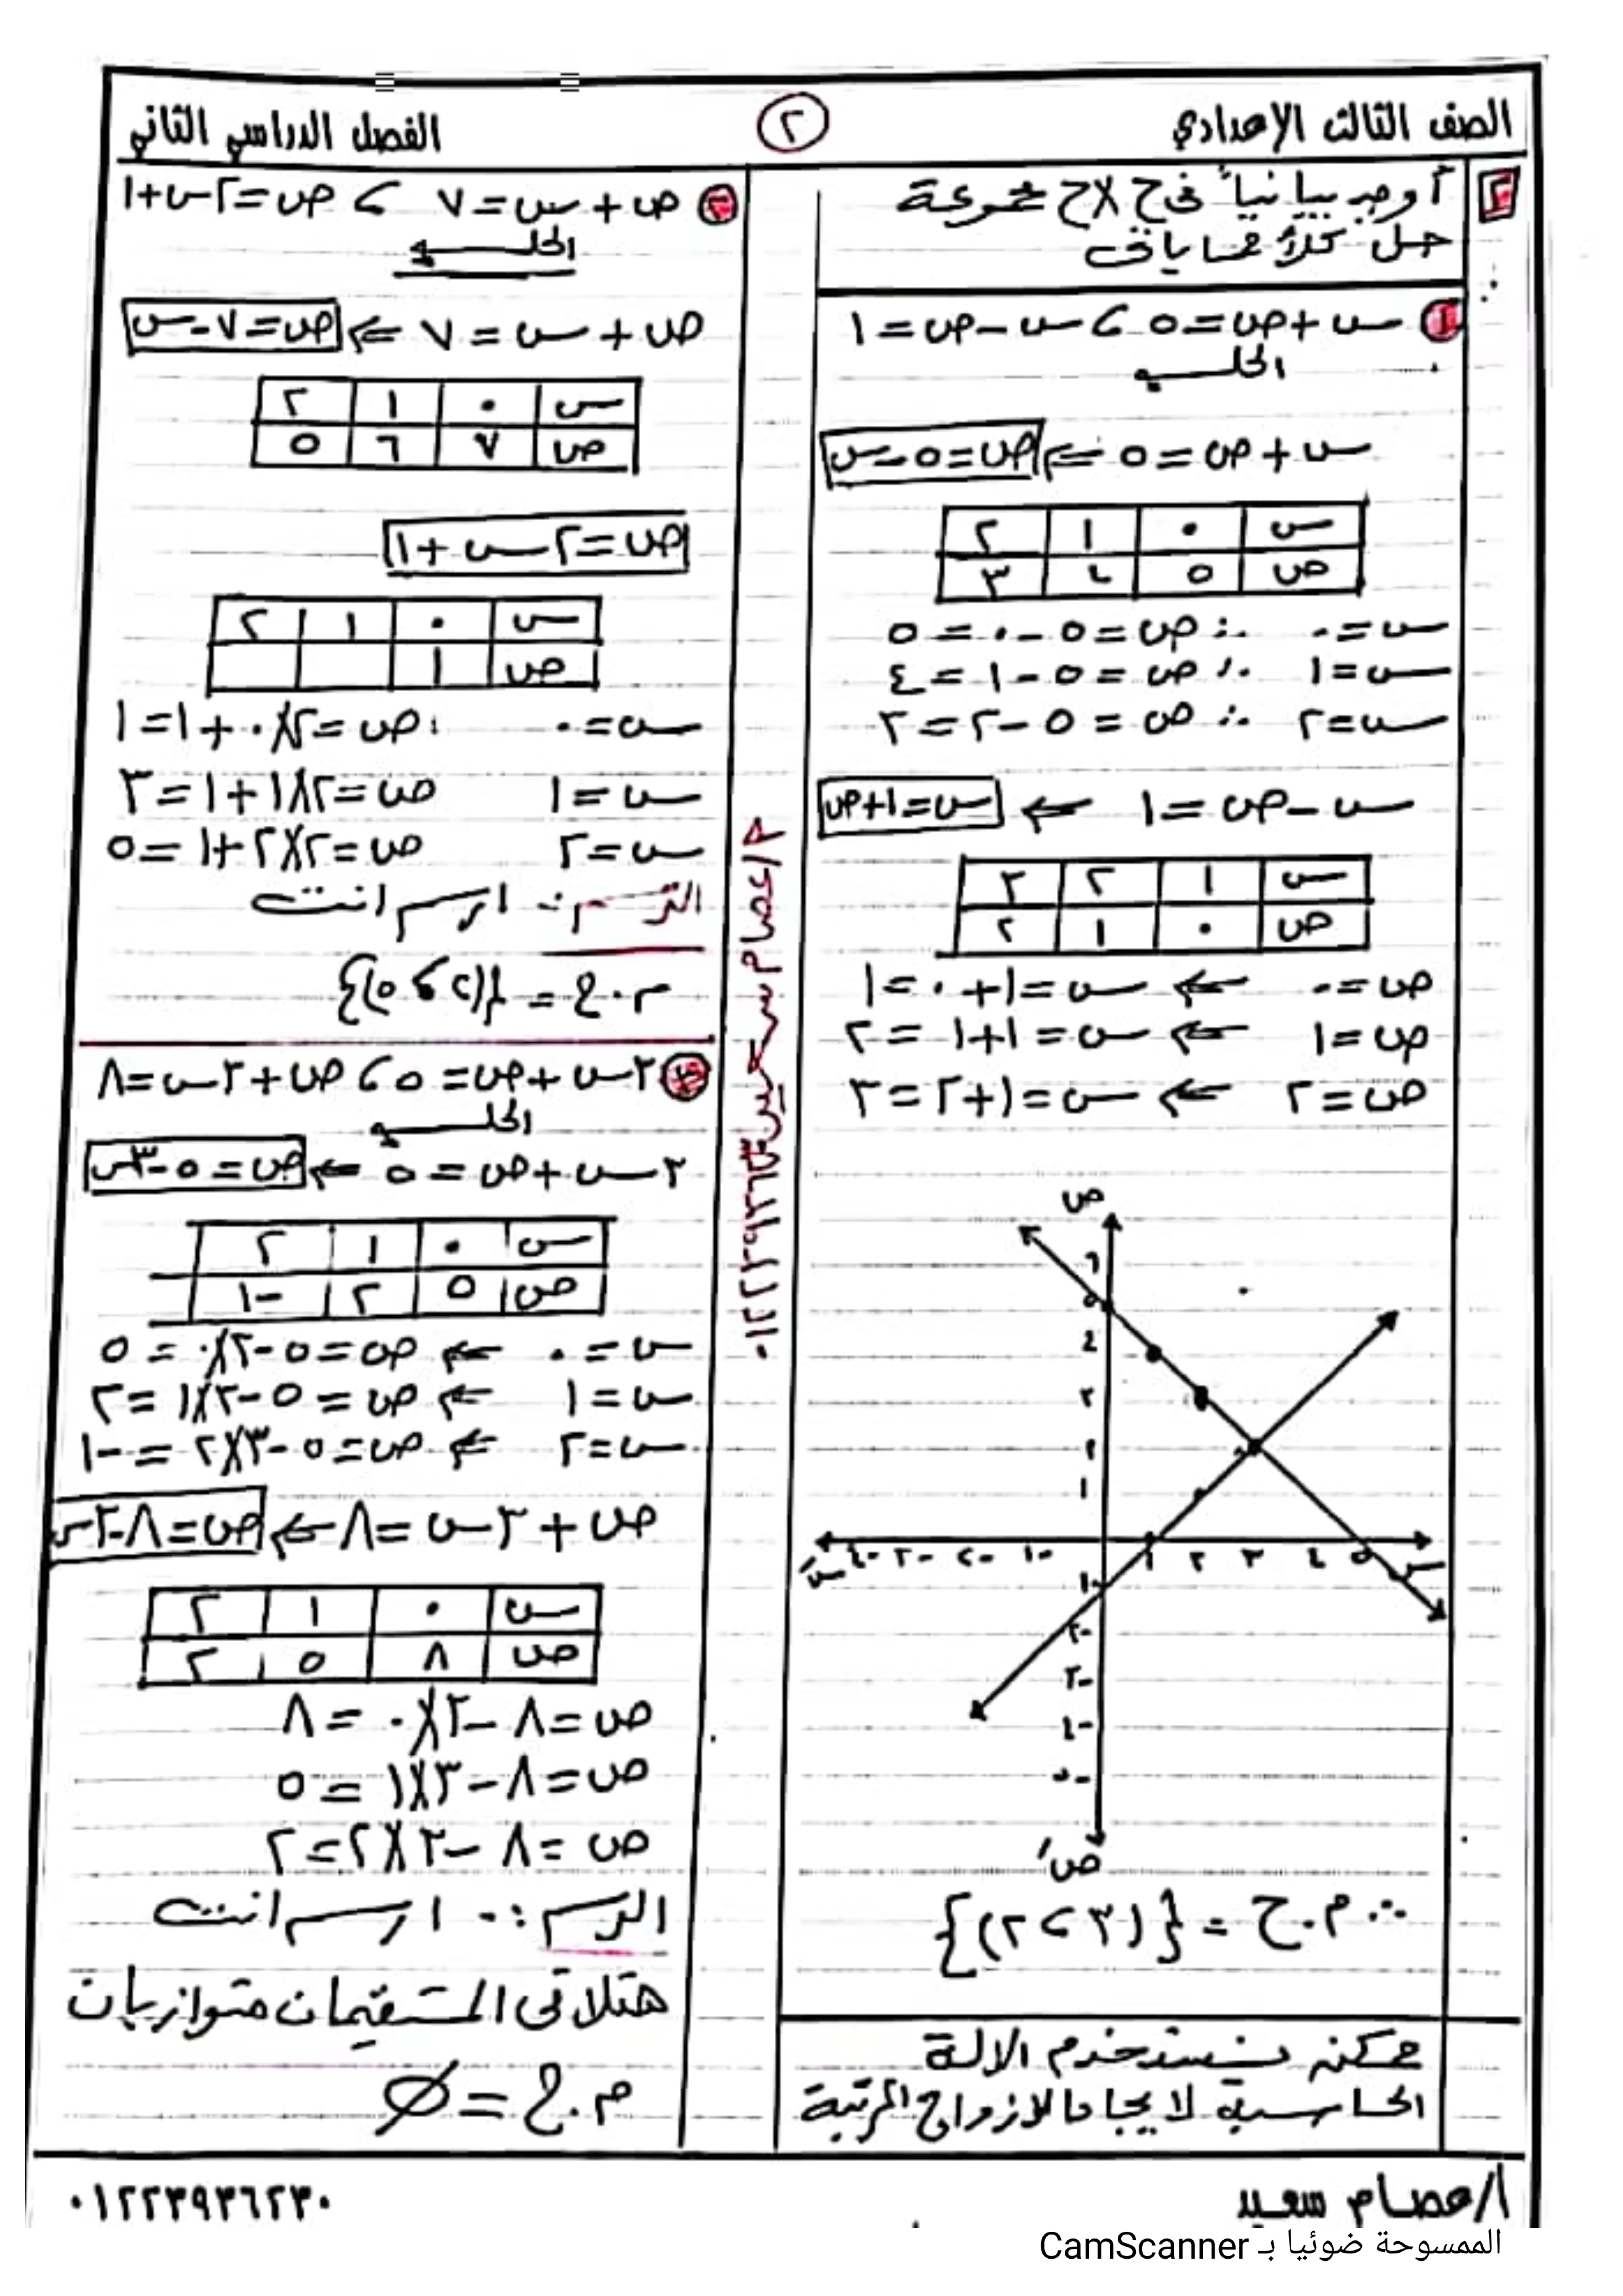 الصف الثالث الإعدادي
٢
الفصل الدراسي الثاني
٢ أوجد بيانياً في ح × ح مجموعة
حل كلاً مما يأتي
١ س + ص = ٥ ، س − ص = ١
الحل
س + ص = ٥ ⇐ ص = ٥ − س
س ٠ ١ ٢
ص ٥ ٤ ٣
س = ٠ ∴ ص = ٥ − ٠ = ٥
س = ١ ∴ ص = ٥ − ١ = ٤
س = ٢ ∴ ص = ٥ − ٢ = ٣
س − ص = ١ ⇐ س = ١ + ص
س ١ ٢ ٣
ص ٠ ١ ٢
ص = ٠ ⇐ س = ١ + ٠ = ١
ص = ١ ⇐ س = ١ + ١ = ٢
ص = ٢ ⇐ س = ١ + ٢ = ٣
ص
٦
٥
٤
٣
٢
١
س َ -٤ -٣ -٢ -١ ١ ٢ ٣ ٤ ٥ س
-١
-٢
-٣
-٤
-٥
ص َ
∴ م.ح = {(٣ ، ٢)}
ممكن نستخدم الالة
الحاسبة لايجاد الازواج المرتبة
٢ ص + س = ٧ ، ص = ٢س + ١
الحل
ص + س = ٧ ⇐ ص = ٧ − س
س ٠ ١ ٢
ص ٧ ٦ ٥
ص = ٢س + ١
س ٠ ١ ٢
ص ١
س = ٠ ص = ٢ × ٠ + ١ = ١
س = ١ ص = ٢ × ١ + ١ = ٣
س = ٢ ص = ٢ × ٢ + ١ = ٥
الرسم :- ارسم انت
م.ح = {(٢ ، ٥)}
٣ ٣س + ص = ٥ ، ص + ٣س = ٨
الحل
٣س + ص = ٥ ⇐ ص = ٥ − ٣س
س ٠ ١ ٢
ص ٥ ٢ -١
س = ٠ ⇐ ص = ٥ − ٣ × ٠ = ٥
س = ١ ⇐ ص = ٥ − ٣ × ١ = ٢
س = ٢ ⇐ ص = ٥ − ٣ × ٢ = -١
ص + ٣س = ٨ ⇐ ص = ٨ − ٣س
س ٠ ١ ٢
ص ٨ ٥ ٢
ص = ٨ − ٣ × ٠ = ٨
ص = ٨ − ٣ × ١ = ٥
ص = ٨ − ٣ × ٢ = ٢
الرسم :- ارسم انت
هتلاقى المستقيمان متوازيان
م.ح = ∅
أ/عصام سعيد
٠١٢٢٣٩٣٦٢٣٠
الممسوحة ضوئيا بـ CamScanner